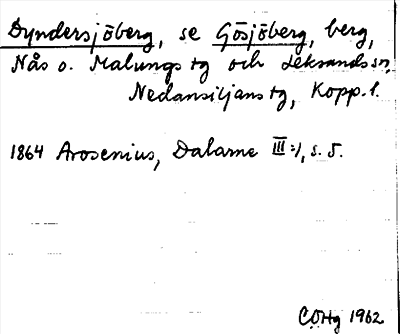 Dyndersjöberg, se Gösjöberg, berg,
Nås o. Malungs tg och Leksands sn,
Nedansiljans tg, Kopp. l.
1864 Arosenius, Dalarne III:1, s. 5.
COHg 1962